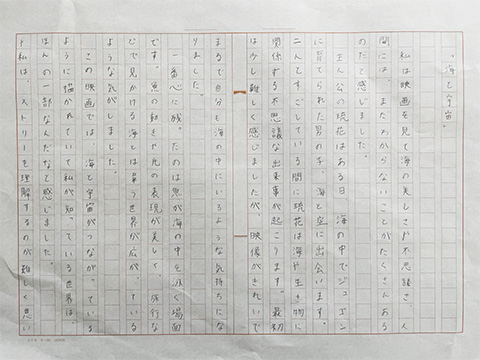 「海と宇宙」
私は映画を見て海の美しさや不思議さ、人
間には、まだわからないことがたくさんある
のだと感じました。
主人公の琉花はある日、海の中でジュゴン
に育てられた男の子、海と空に出会います。
二人とすごしている間に琉花は海や生き物に
関係する不思議な出来事が起こります。最初
は少し難しく感じましたが、映像がきれいで
まるで自分も海の中にいるような気持ちにな
りました。
一番心に残ったのは魚が海の中を泳ぐ場面
です。魚の動きや光の表現が美しく、旅行な
どで見かける海とは違う世界が広がっている
ような気がしました。
この映画では、海と宇宙がつながっている
ように描かれていて私が知っている世界は、
ほんの一部なんだなて感じました。
私は、ストリーを理解するのが難しく思い